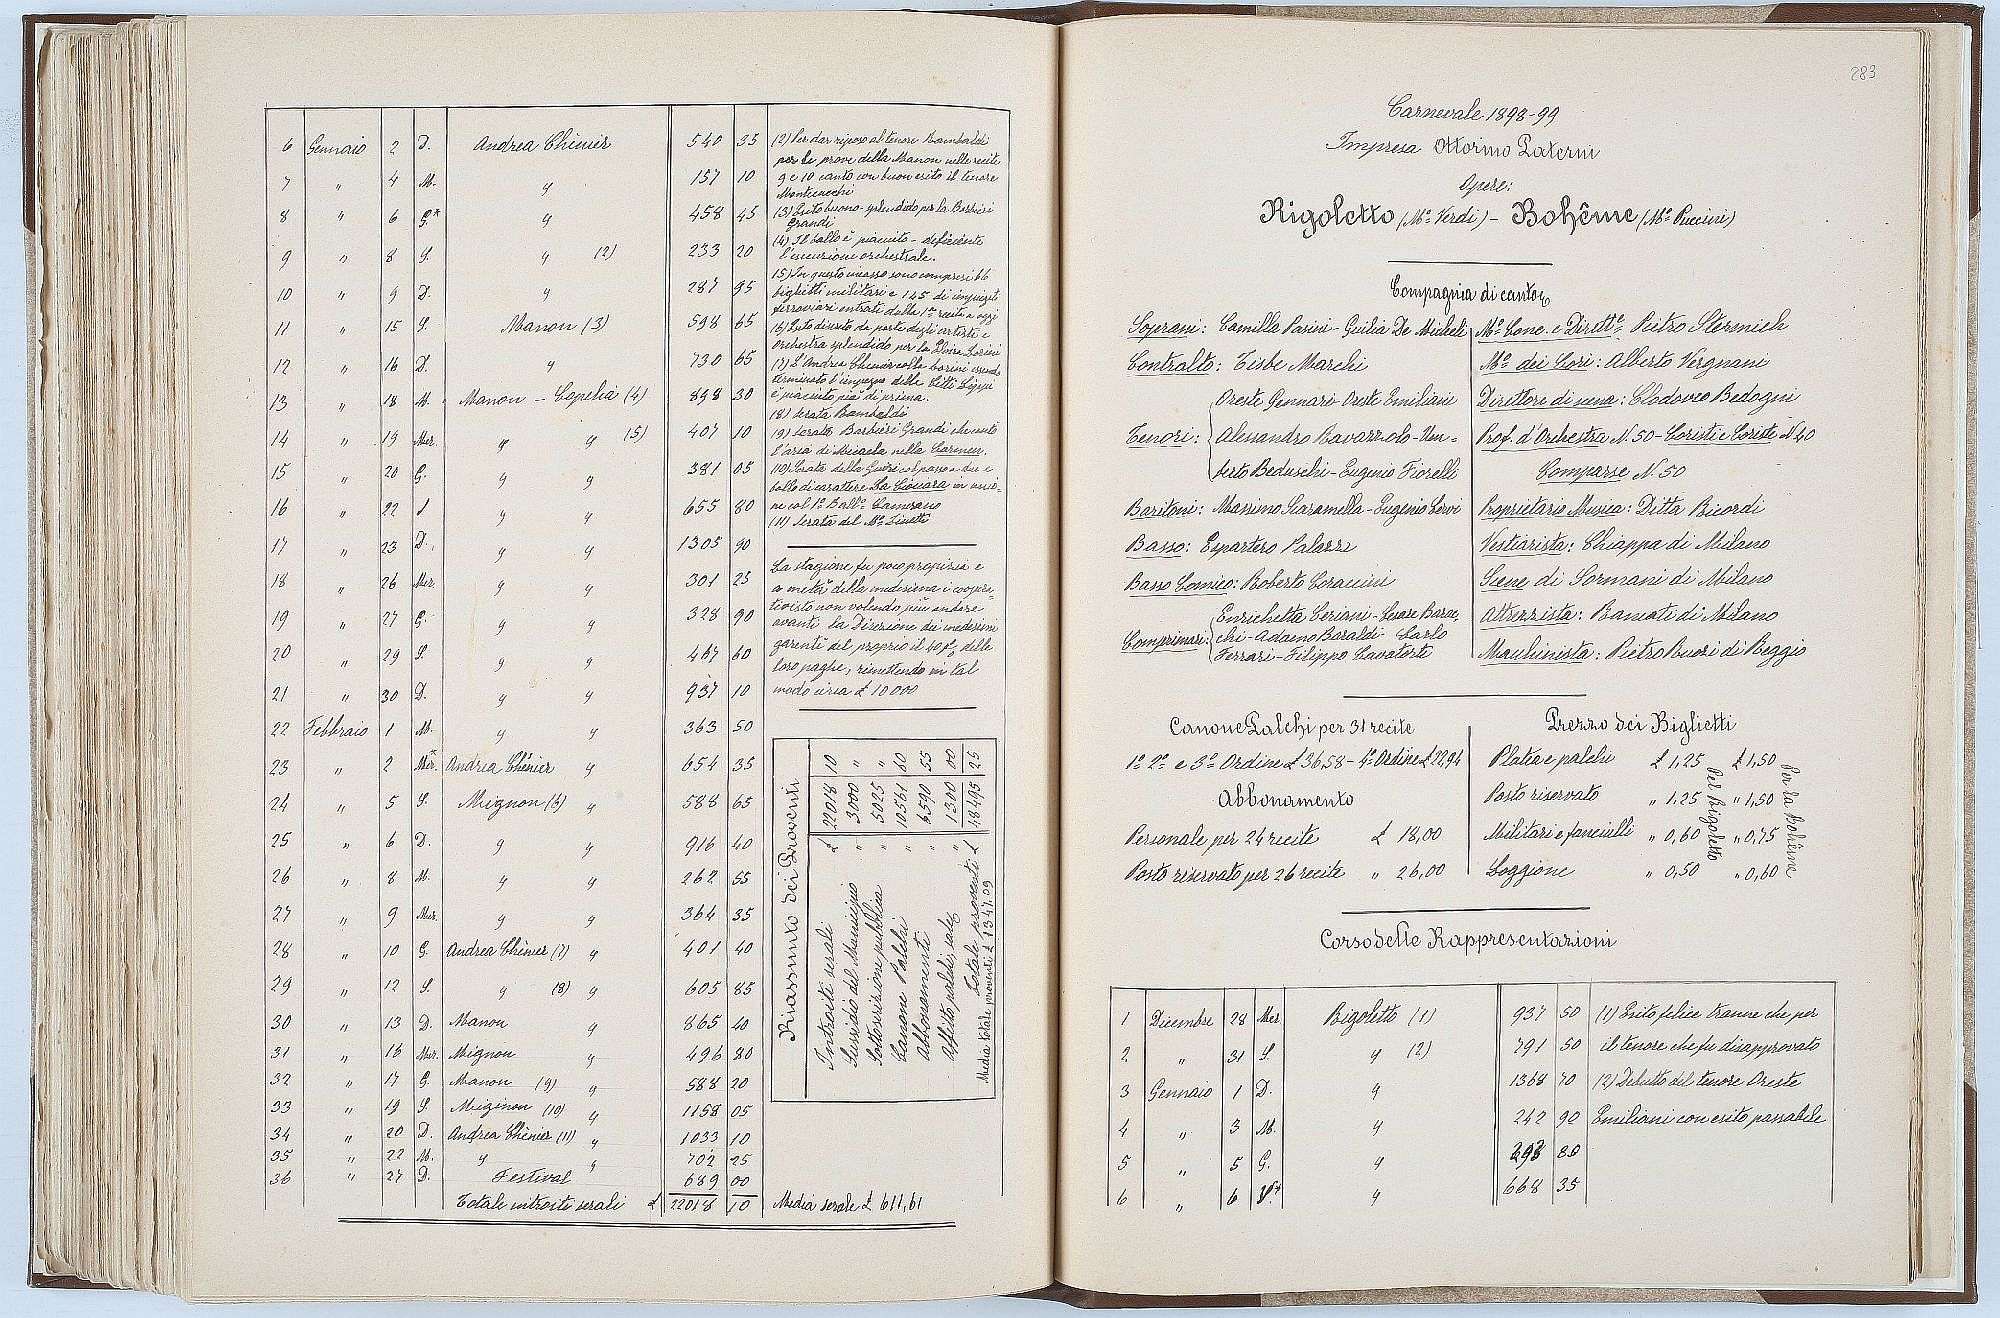 6 Gennaio 2 D. Andrea Chénier 540 35
7 " 4 M. " 157 10
8 " 6 G.* " 458 45
9 " 8 S. " (2) 233 20
10 " 9 D. " 287 95
11 " 15 S. Manon (3) 598 65
12 " 16 D. " 730 65
13 " 18 M. Manon - Copelia (4) 898 30
14 " 19 Mer. " " (5) 407 10
15 " 20 G. " " 381 05
16 " 22 S " " 655 80
17 " 23 D. " " 1305 90
18 " 26 Mer. " " 301 25
19 " 27 G. " " 328 90
20 " 29 S. " " 467 60
21 " 30 D. " " 937 10
22 Febbraio 1 M. " " 363 50
23 " 2 Mer.* Andrea Chénier " 654 35
24 " 5 S. Mignon (6) " 588 65
25 " 6 D. " " 916 40
26 " 8 M. " " 262 55
27 " 9 Mer. " " 364 35
28 " 10 G. Andrea Chénier (7) " 401 40
29 " 12 S. " (8) " 605 85
30 " 13 D. Manon " 865 40
31 " 16 Mer. Mignon " 496 80
32 " 17 G. Manon (9) " 588 20
33 " 19 S. Mignon (10) " 1158 05
34 " 20 D. Andrea Chénier (11) " 1033 10
35 " 22 M. " " 702 25
36 " 27 D. Festival 689 00
Totale introiti serali £ 22018 10
Media serale £ 611,61
(2) Per dar riposo al tenore Rambaldi
per le prove della Manon nelle recite
9 e 10 cantò con buon esito il tenore
Montecucchi
(3) Esito buono - splendido per la Barbieri
Grandi
(4) Il ballo è piaciuto - deficiente
l'esecuzione orchestrale.
(5) In questo incasso sono compresi 66
biglietti militari e 145 di impiegati
ferroviari entrati dalla 1ª recita a oggi
(6) Esito discreto da parte degli artisti e
orchestra splendido per la Elvira Lorini
(7) L'Andrea Chénier colla Lorini essendo
terminato l'impegno della Petti Lippi
è piaciuto più di prima.
(8) Serata Rambaldi
(9) Serata Barbieri Grandi che cantò
l'aria di Micaela nella Carmen.
(10) Serata della col passo a due e
ballo di carattere La Giovara in unio-
ne col 1º Ball.º Camerano
(11) Serata del Mº Zinetti
La stagione fu poco propizia e
a metà della medesima i coopera-
tivisti non volendo più andare
avanti la Direzione dei medesimi
garentì del proprio il 40 % delle
loro paghe, rimettendo in tal
modo circa £ 10000
Riassunto dei Proventi
Introiti serali £ 22018 10
Sussidio del Municipio " 3000 "
Sottoscrizione pubblica " 5025 "
Canone Palchi " 10561 60
Abbonamenti " 6590 55
Affitto palchi, sale " 1300 00
Totale proventi £ 48495 25
Media totale proventi £ 1347.09
283
Carnevale 1898-99
Impresa Ottorino Paterni
Opere:
Rigoletto (Mº Verdi) - Bohême (Mº Puccini)
Compagnia di canto
Soprani: Camilla Pasini - Giulia De Micheli
Contralto: Tisbe Marchi
Tenori: Oreste Gennari - Oreste Emiliani
Alessandro Ravazzolo - Um-
berto Beduschi - Eugenio Fiorelli
Baritoni: Massimo Scaramella - Eugenio Cervi
Basso: Espartero Palazzi
Basso Comico: Roberto Coraccini
Comprimari: Enrichetta Ceriani - Cesare Barac-
chi - Adamo Baraldi - Carlo
Ferrari - Filippo Cavatorte
Mº Conc. e Dirett.e Pietro Stermich
Mº dei Cori: Alberto Vergnani
Direttore di scena: Clodoveo Bedogni
Prof. d'Orchestra N. 50 - Coristi e Coriste N 40
Comparse N 50
Proprietario Musica: Ditta Ricordi
Vestiarista: Chiappa di Milano
Scene di Sormani di Milano
Attrezzista: Rancati di Milano
Macchinista: Pietro Ruozi di Reggio
Canone Palchi per 31 recite
1º 2º e 3º Ordine £ 36,58 - 4º Ordine £ 22,94
Abbonamento
Personale per 24 recite £ 18,00
Posto riservato per 26 recite " 26,00
Prezzo dei Biglietti
Platea e palchi £ 1,25 £ 1,50
Posto riservato " 1,25 " 1,50
Militari e fanciulli " 0,60 " 0,75
Loggione " 0,50 " 0,60
Pel Rigoletto
Per la Bohême
Corso delle Rappresentazioni
1 Dicembre 28 Mer. Rigoletto (1) 937 50
2 " 31 S. " (2) 791 50
3 Gennaio 1 D. " 1368 70
4 " 3 M. " 242 90
5 " 5 G. " 293 80
6 " 6 V.* " 668 35
(1) Esito felice tranne che per
il tenore che fu disapprovato
(2) Debutto del tenore Oreste
Emiliani con esito passabile